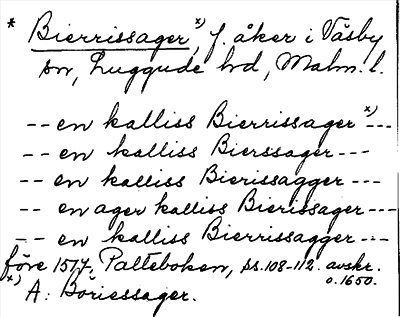 * Bierrissager x), f. åker i Väsby
sn, Luggude hd, Malm. l.
-- en kalliss Bierrissager x) ---
-- en kalliss Bierssager ---
-- en kalliss Bierissagger ---
-- en ager kalliss Bierissager ---
-- en kalliss Bierrissagger ---
före 1517. Palteboken, ss. 108-112. avskr.
o. 1650.
x) A: Böriessager.